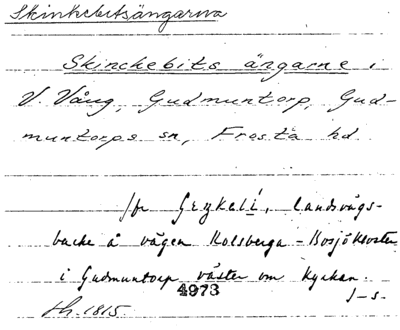 Skinkebitsängarna
Skinckebits ängarne i
V. Vång, Gudmuntorp, Gud-
muntorps sn, Frosta hd
/fr Geykeli, landsvägs-
backe å vägen Rolsberga - Bosjökloster
i Gudmuntorp väster om kyrkan.
4973
J-s.
1815.